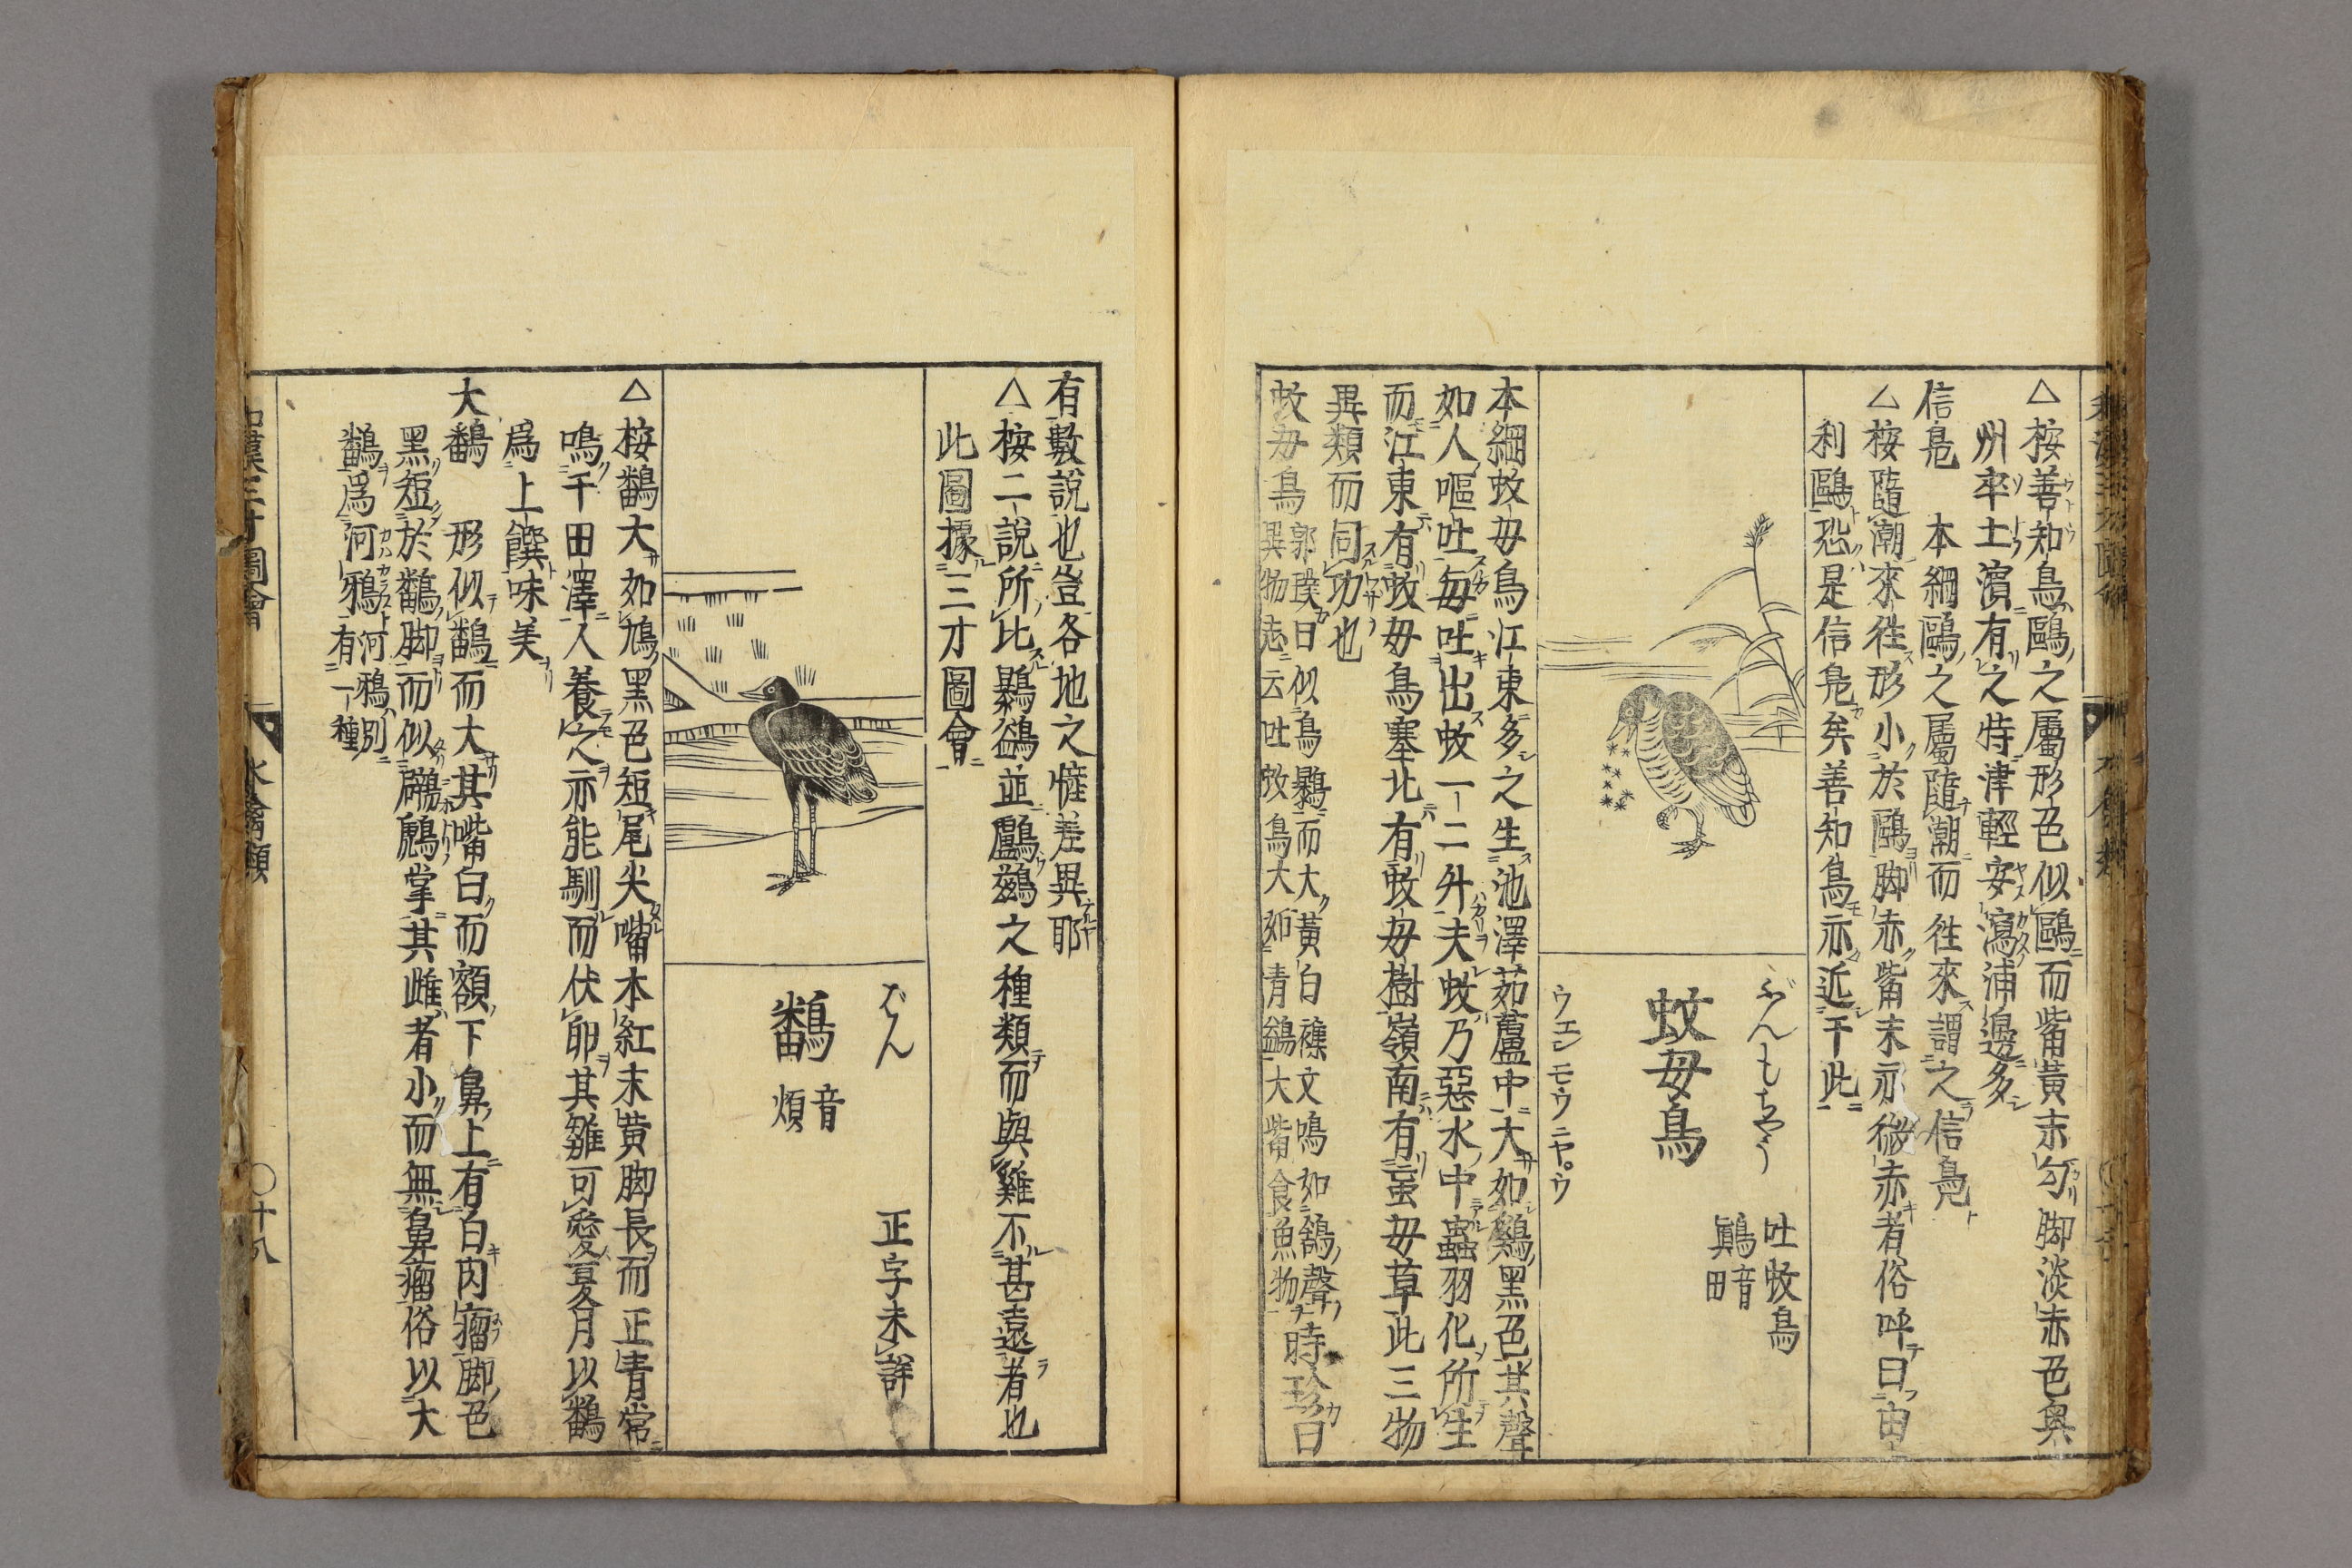 △桉善知鳥鷗之屬形色似鷗而觜黃末勾脚淡赤色奥
州卒土濵有之特津輕安瀉浦邊多
信鳬　本綱鷗之屬隨潮而徃來謂之信鳬
△桉隨潮來徃形小於鷗脚赤觜末亦微赤者俗呼曰由
利鷗恐是信鳬矣善知鳥亦近于此
ぶんもちやう
吐蚊鳥
鷏音田
蚊母鳥
ウエン モウ ニヤ゚ウ
本綱蚊母鳥江東多之生池澤茹蘆中大如鷄黑色其聲
如人嘔吐每吐出蚊一二升夫蚊乃惡水中蟲羽化所生
而江東有蚊母鳥塞北有蚊母樹嶺南有䖟母草此三物
異類而同功也
蚊母鳥
郭璞曰似烏鷃而大黃白襍文鳴如鴿聲
異物志云吐蚊鳥大如青鷁大觜食魚物
時珍曰
有數說也豈各地之差異耶
△桉二說所比鷃鷁並鸕鷀之種類而與雞不甚遠者也
此圖據三才圖會
ばん
正字未詳
鷭
音煩
△桉鷭大如鳩黑色短尾尖嘴本紅末黄脚長而正青常
鳴于田澤人養之亦能馴而伏卵其雛可愛夏月以鷭
爲上饌味美
大鷭　形似鷭而大其嘴白而額下鼻上有白肉瘤脚色
黑短於鷭脚而似鸊鷉掌其雌者小而無鼻瘤俗以大
鷭爲河鴉
河鴉別
有一種
和漢三才圖會
水禽類
〇十八